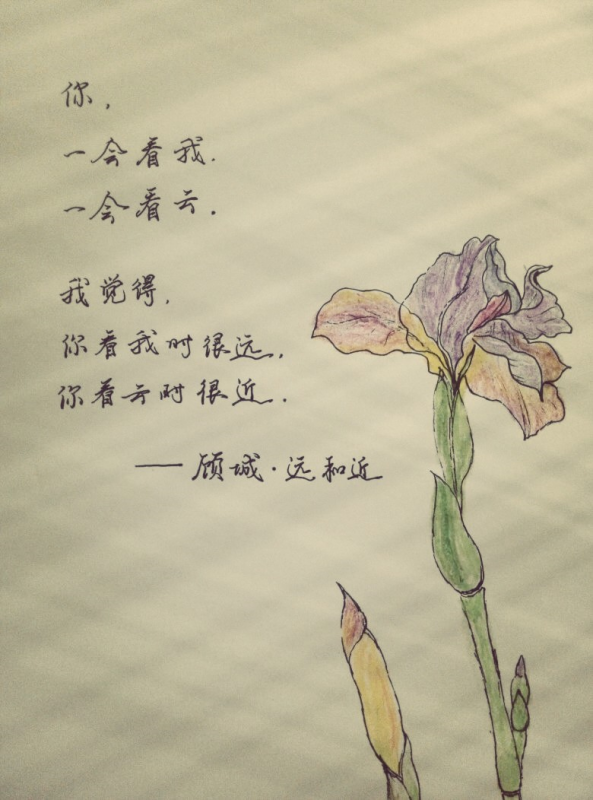 你，
一会看我．
一会看云．
我觉得，
你看我时很远，
你看云时很近．
——顾城·远和近